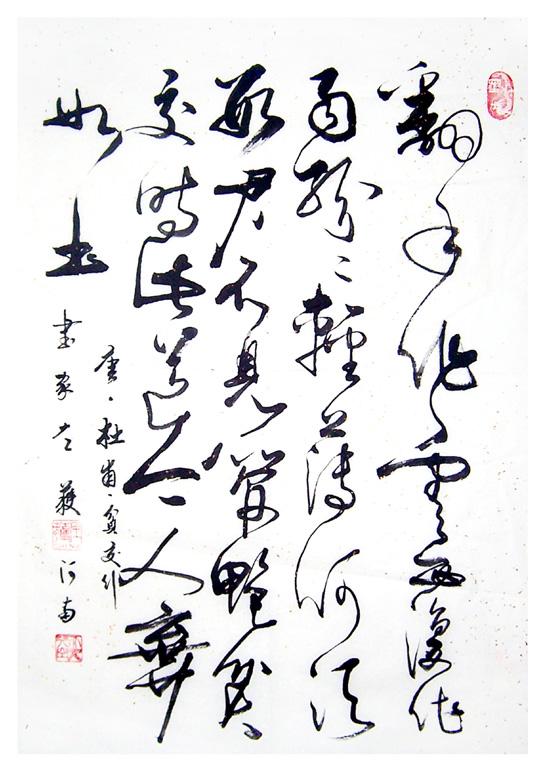 翻手作雲復作
雨紛紛輕薄何須
數君不見管鮑貧
交時此道今人棄
如土
唐·杜甫·貧交行
書家 河南